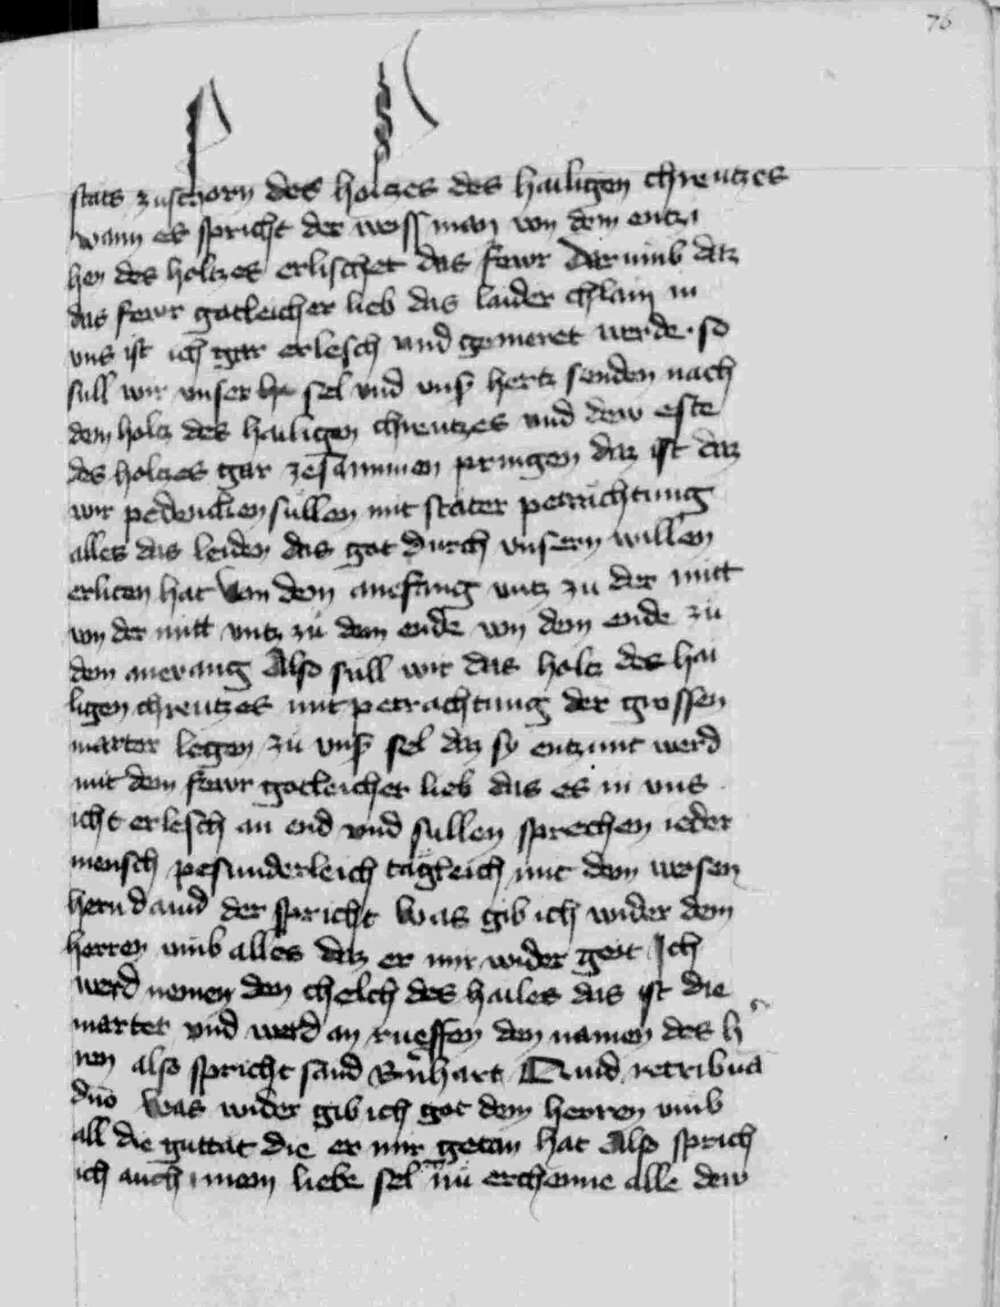 76
stats zuschorn des holtzes des hailigen chreutzes
wann es spricht der weiss man von dem entzi
hen des holtzes erlischet das fewr Darumb daz
das fewr gotleicher lieb das laider chlain in
uns ist icht gar erlesch und gemeret werde · so
sull wir unser sel und uns hertz senden nach
dem holtz des hailigen chreutzes und dew este
des holtzes gar zesammen pringen daz ist daz
wir pedenchen sullen mit stater petrachtung
alles das leiden das got durch unsern willen
erliten hat Von dem anefang untz zu der mitt
von der mitt untz zu dem ende von dem ende zu
dem anevang Also sull wir das holtz des hai
ligen chreutzes mit petrachtung der grossen
marter legen zu uns sel daz sy entzunt werd
mit dem fewr gotleicher lieb das es in uns
icht erlesch an end und sullen sprechen ieder
mensch pesunderleich tagleich mit dem weisen
hern david der spricht Was gib ich wider dem
herren umb alles daz er mir wider geit Ich
werd nemen den chelch des hailes das ist die
marter und werd an rueffen den namen des h
ren also spricht sand Bernhart Quid retribua
dno Was wider gib ich got dem herren umb
all die guttat die er mir getan hat Also sprich
ich auch mein liebe sel nu erchenne alle dew